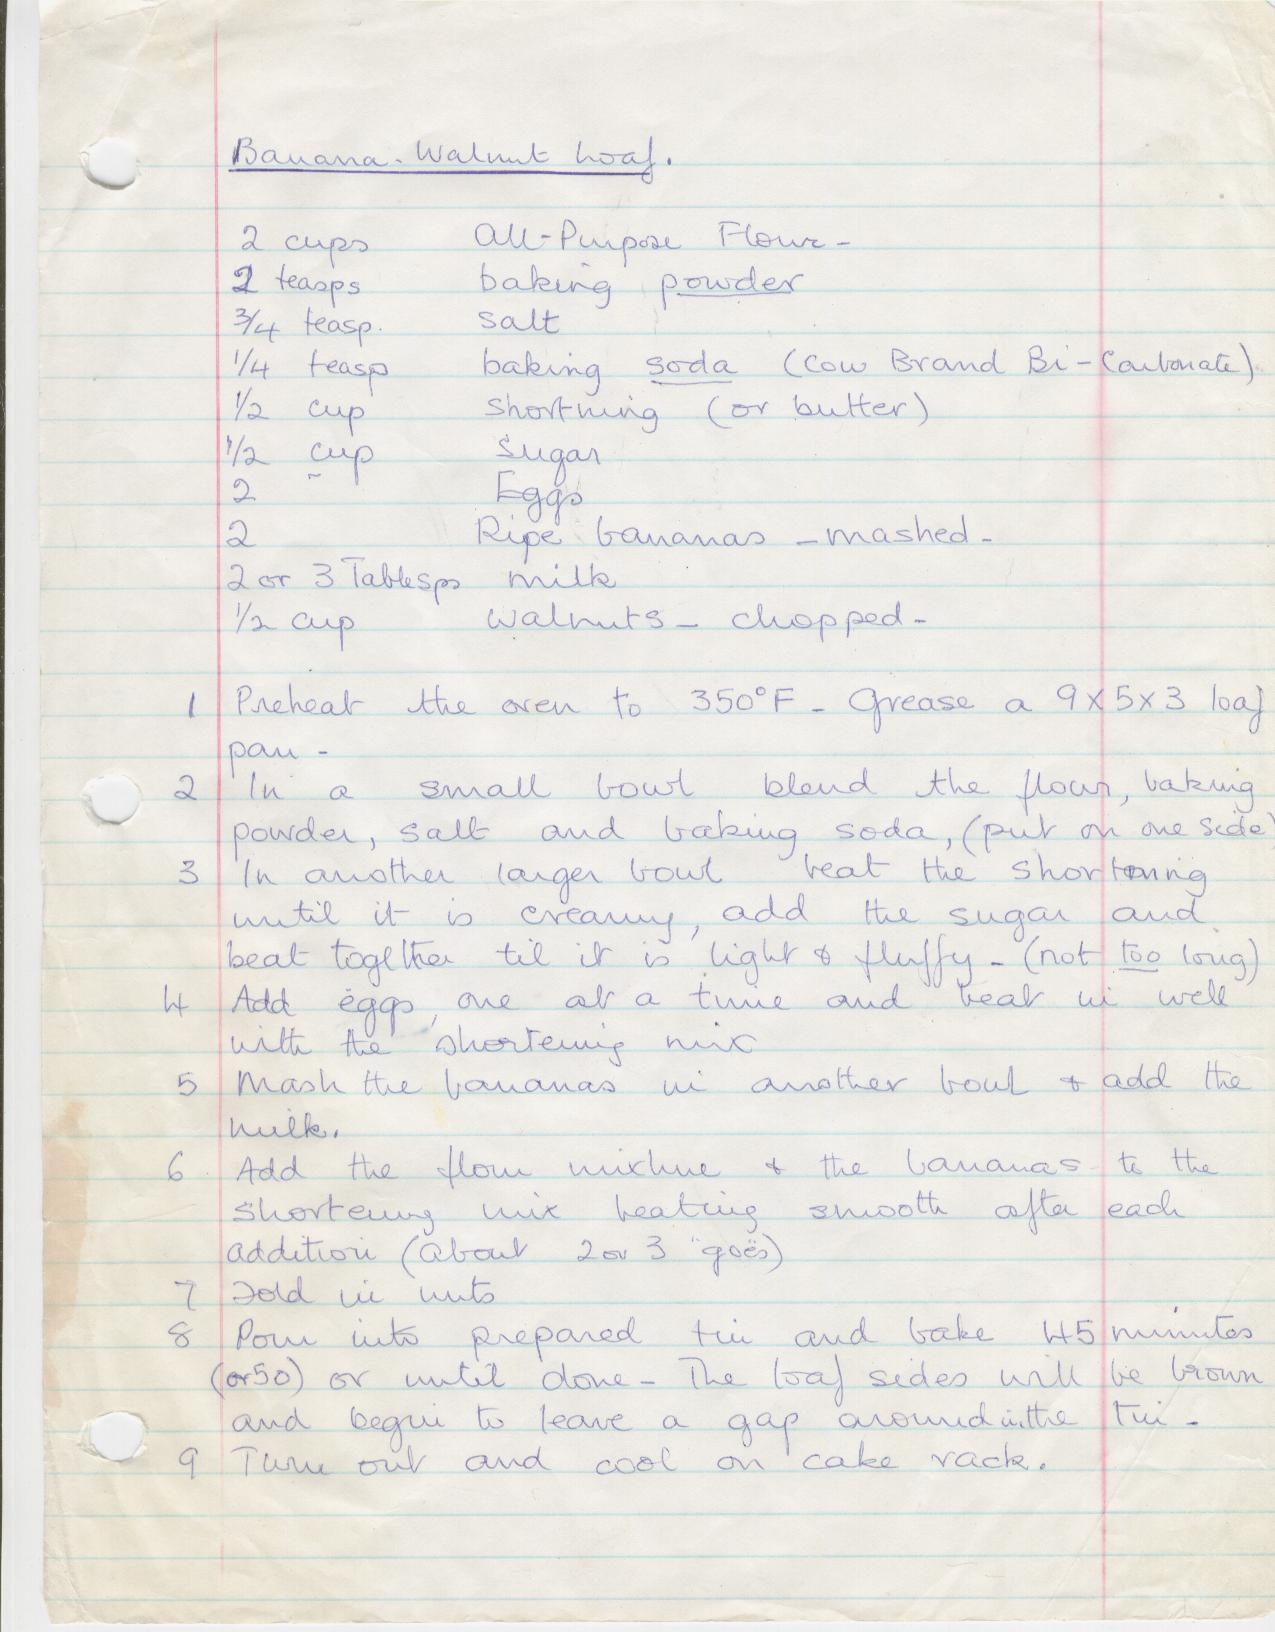 Banana-Walnut Loaf.
2 cups All-Purpose Flour -
2 teasps baking powder
3/4 teasp. salt
1/4 teasp baking soda (Cow Brand Bi-Carbonate)
1/2 cup shortning (or butter)
1/2 cup Sugar
2 Eggs
2 Ripe bananas - mashed -
2 or 3 Tablesps milk
1/2 cup walnuts - chopped -
1 Preheat the oven to 350°F - Grease a 9x5x3 loaf
pan -
2 In a small bowl blend the flour, baking
powder, salt and baking soda, (put on one side)
3 In another larger bowl beat the shortning
until it is creamy, add the sugar and
beat together til it is light & fluffy - (not too long)
4 Add eggs, one at a time and beat in well
with the shortening mix
5 Mash the bananas in another bowl & add the
milk.
6 Add the flour mixture & the bananas to the
shortening mix beating smooth after each
addition (about 2 or 3 "goes")
7 Fold in nuts
8 Pour into prepared tin and bake 45 minutes
(or 50) or until done - The loaf sides will be brown
and begin to leave a gap around in the tin -
9 Turn out and cool on cake rack.